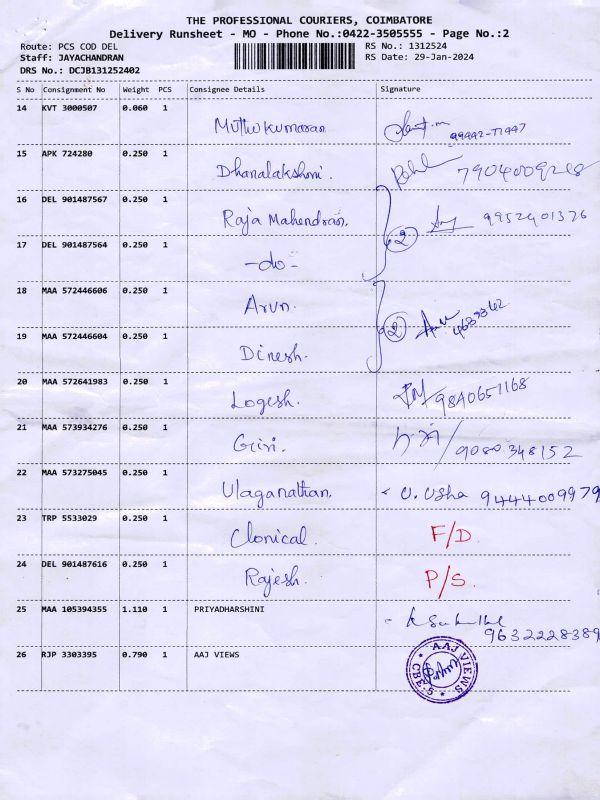 THE PROFESSIONAL COURIERS, COIMBATORE
Delivery Runsheet - MO - Phone No.:0422-3505555 - Page No.:2
Route: PCS COD DEL
Staff: JAYACHANDRAN
DRS No.: DCJB131252402
RS No.: 1312524
RS Date: 29-Jan-2024
S No Consignment No Weight PCS Consignee Details Signature
14 KVT 3000507 0.060 1 Muthukumaran 99942-77947
15 APK 724280 0.250 1 Dhanalakshmi.
16 DEL 901487567 0.250 1 Raja Mahendran. 2 9952401376
17 DEL 901487564 0.250 1 -do-
18 MAA 572446606 0.250 1 Arun. 2
19 MAA 572446604 0.250 1 Dinesh.
20 MAA 572641983 0.250 1 Logesh. 9840651168
21 MAA 573934276 0.250 1 Giri. 9080348152
22 MAA 573275045 0.250 1 Ulaganathan. U. Usha 9444009979
23 TRP 5533029 0.250 1 Clonical. F/D.
24 DEL 901487616 0.250 1 Rajesh. P/S.
25 MAA 105394355 1.110 1 PRIYADHARSHINI 9632228389
26 RJP 3303395 0.790 1 AAJ VIEWS AAJ VIEWS CBE-5